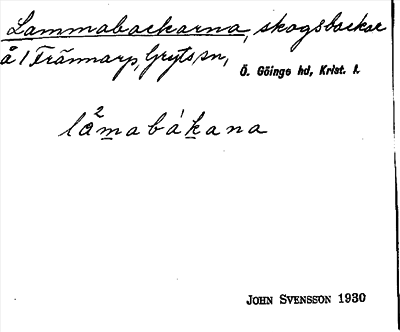 Lammabackarna, skogsbackar
å 1 Trännarp, Gryts sn,
Ö. Göinge hd, Krist. l.
lå²mabákana
JOHN SVENSSON 1930